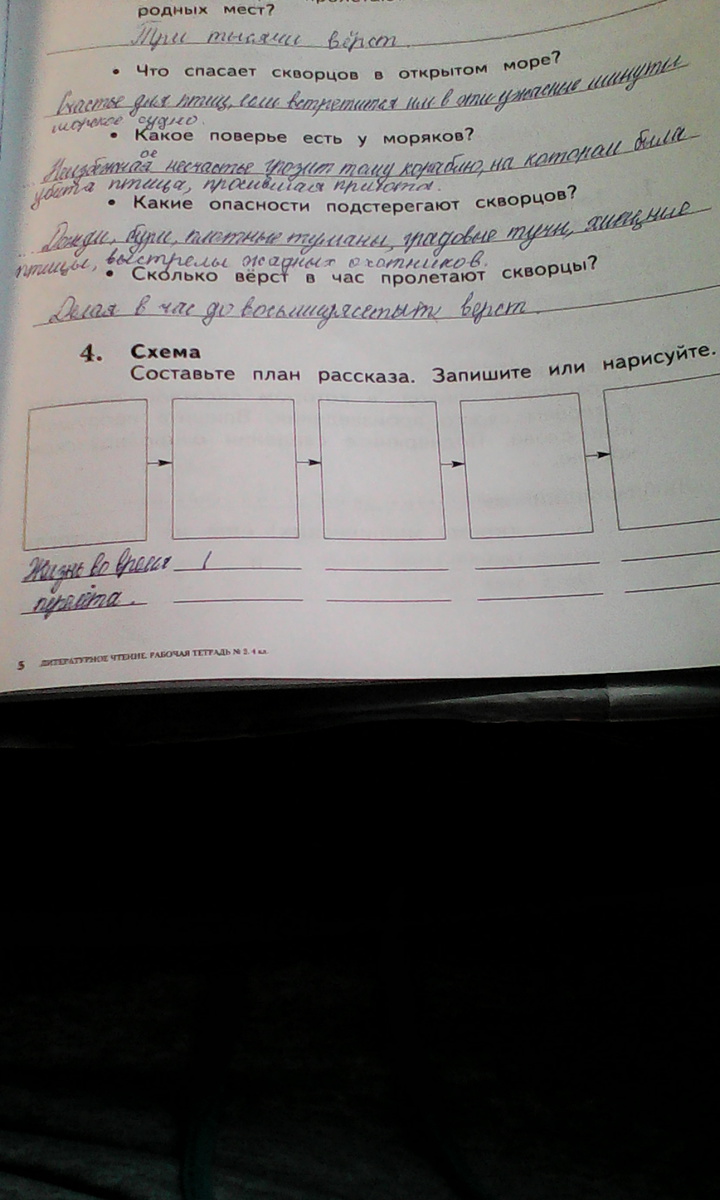 родных мест?
Три тысячи вёрст.
• Что спасает скворцов в открытом море?
Счастье для птиц, если встретится им в эти ужасные минуты
морское судно.
• Какое поверье есть у моряков?
ое
Неизбежная несчастье грозит тому кораблю, на котором была
убита птица, просившая приюта.
• Какие опасности подстерегают скворцов?
Дожди, бури, плотные туманы, градовые тучи, хищные
птицы, выстрелы жадных охотников.
• Сколько вёрст в час пролетают скворцы?
Делая в час до верст.
4. Схема
Составьте план рассказа. Запишите или нарисуйте.
Жизнь во время
перелёта.
5 ЛИТЕРАТУРНОЕ ЧТЕНИЕ. РАБОЧАЯ ТЕТРАДЬ № 2. 4 кл.